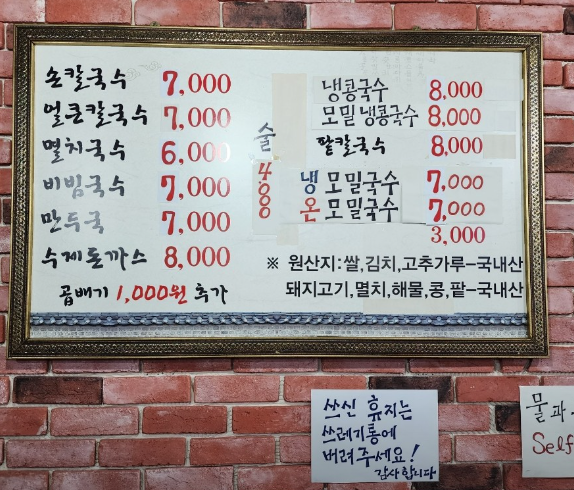 손칼국수 7,000
얼큰칼국수 7,000
멸치국수 6,000
비빔국수 7,000
만두국 7,000
수제돈까스 8,000
곱배기 1,000원 추가
술 4,000
냉콩국수 8,000
모밀냉콩국수 8,000
팥칼국수 8,000
냉모밀국수 7,000
온모밀국수 7,000
3,000
※ 원산지:쌀,김치,고추가루-국내산
돼지고기,멸치,해물,콩,팥-국내산
쓰신 휴지는
쓰레기통에
버려주세요!
감사합니다
물과
Self